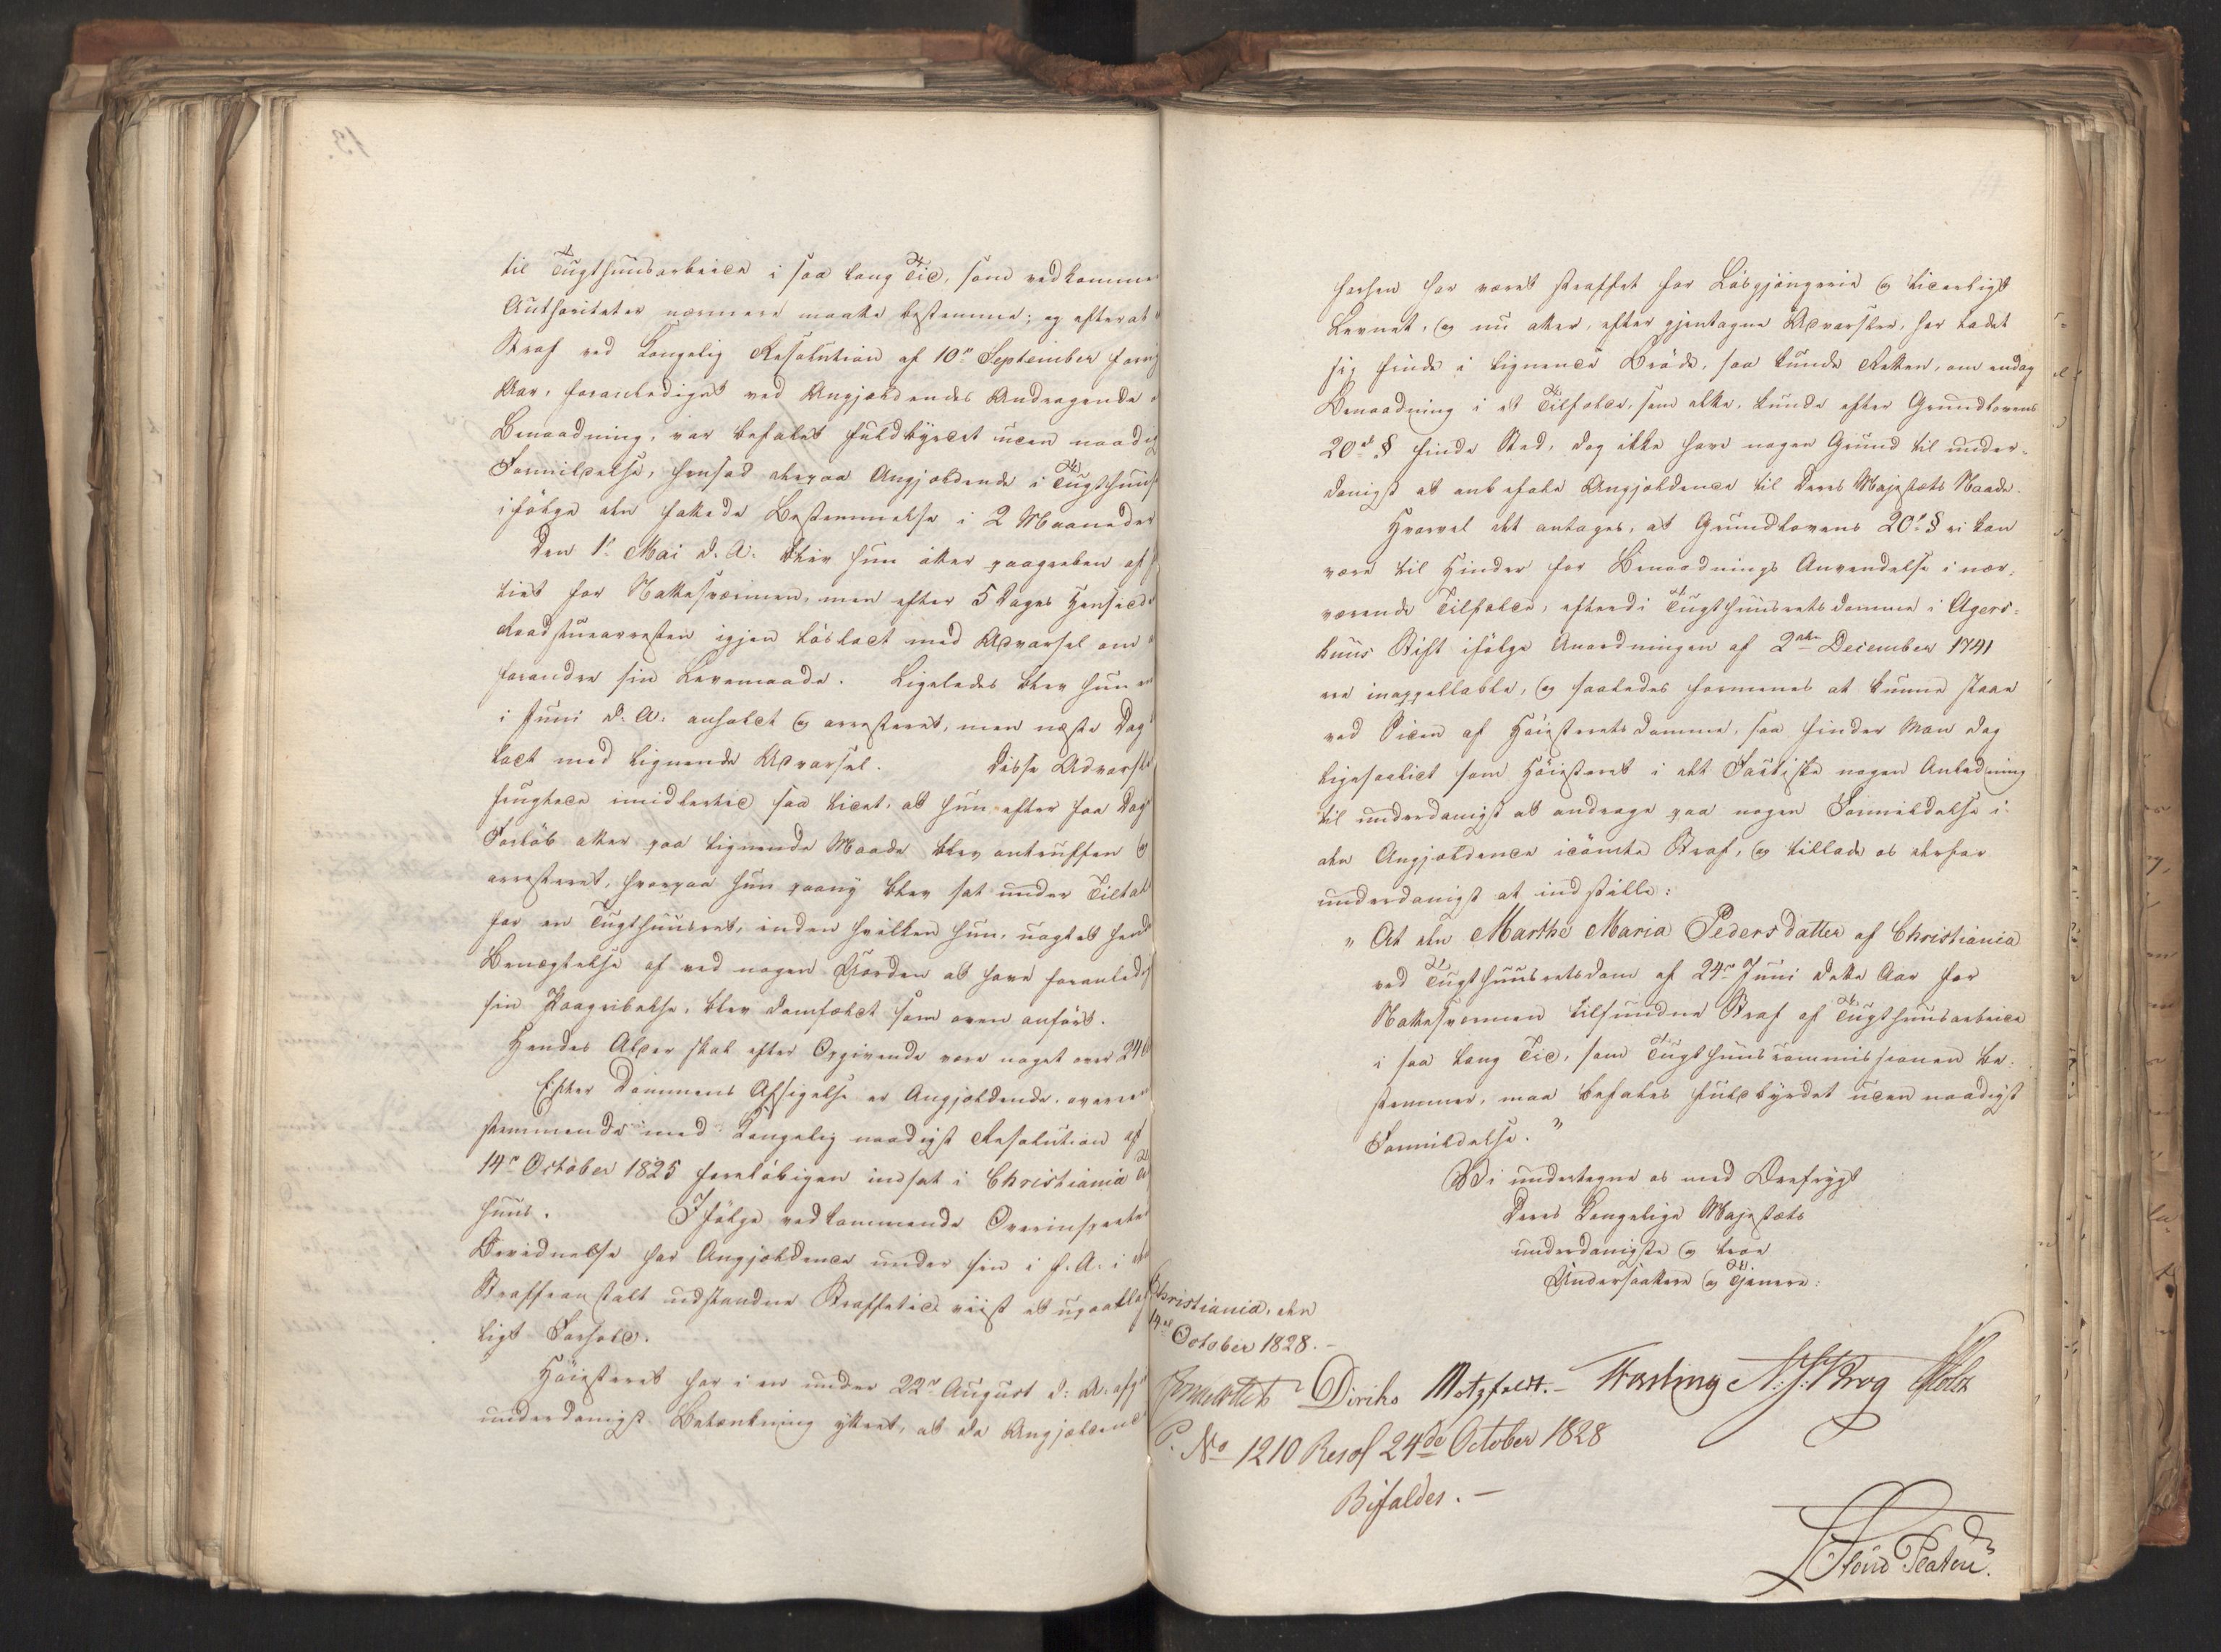 til Tugthuusarbeide i saa lang Tid, som vedkomme
Authoriteter nærmere maatte bestemme; og efterat
Straf ved Kongelig Resolution af 10de September forrig
Aar, foranlediget ved Angjældendes Andragende
Benaadning, var befalet fuldbyrdet uden naadig
Formildelse, hensad derpaa Angjældende i Tugthuus
ifølge den fattede Bestemmelse i 2 Maaneder
Den 1ste Mai d. A. blev hun atter paagreben af
tiet for Nattesværmen, men efter 5 Dages Hensidde
Raadstuearresten igjen løsladt med Advarsel om
forandre sin Levemaade. Ligeledes blev hun
i Juni d. A. anholdt og arresteret, men næste Dag
ladt med lignende Advarsel. Disse Advarsle
frugtede imidlertid saa lidet, at hun efter faa Dag
Forløb atter paa lignende Maade blev antruffen og
arresteret, hvorpaa hun paany blev sat under Tiltal
for en Tugthuusret, inden hvilken hun, uagtet hend
Benægtelse af ved nogen Uorden at have foranledig
sin Paagribelse, blev domfældt som oven anført.
Hendes Alder skal efter Opgivende være noget over 24
Efter Dommens Afsigelse er Angjældende, overeen
stemmende med Kongelig naadigst Resolution af
14de October 1825 foreløbigen indsat i Christiania
huus. Ifølge vedkommende Overinspecteu
Bevidnelse har Angjældende under sin i f. A. i
Straffeanstalt udstandne Straffetid viist et upaakla
ligt Forhold.
Høiesteret har i en under 22de August d. A. afg
underdanigst Betænkning yttret, at da Angjældend
forhen har været straffet for Løsgjængerie og liderligt
Levnet, og nu atter, efter gjentagne Advarsler, har ladet
sig finde i lignende Brøde, saa kunde Retten, om endog
Benaadning i et Tilfælde, som dette, kunde efter Grundlovens
20de § finde Sted, dog ikke have nogen Grund til under-
danigst at anbefale Angjældende til Deres Majestæts Naade.
Hvorvel det antages, at Grundlovens 20de § ei kan
være til Hinder for Benaadnings Anvendelse i nær-
værende Tilfælde, efterdi Tugthuusretsdomme i Agers-
huus Stift ifølge Anordningen af 2den December 1741
ere inappellable, og saaledes formenes at kunne staae
ved Siden af Høiesteretsdomme, saa finder man dog
ligesaalidt som Høiesteret i det Factiske nogen Anledning
til underdanigst at andrage paa nogen Formildelse i
den Angjældende idømte Straf, og tillade os derfor
underdanigst at indstille:
" At den Marthe Maria Pedersdatter af Christiania
ved Tugthuusretsdom af 24de Juni dette Aar for
Nattesværmen tilfundne Straf af Tugthuusarbeide
i saa lang Tid, som Tugthuuscommissionen be-
stemmer, maa befales fuldbyrdet uden naadigst
Formildelse."
Vi undertegne os med Ærefrygt
Deres Kongelige Majestæts
underdanigste og troe
Undersaattere og Tjenere:
Christiania, den
14de October 1828.-
Diriks Motzfeldt.- Fasting N. J. Krog Holst
P. No 1210 Resol 24de October 1828
Bifaldes.-